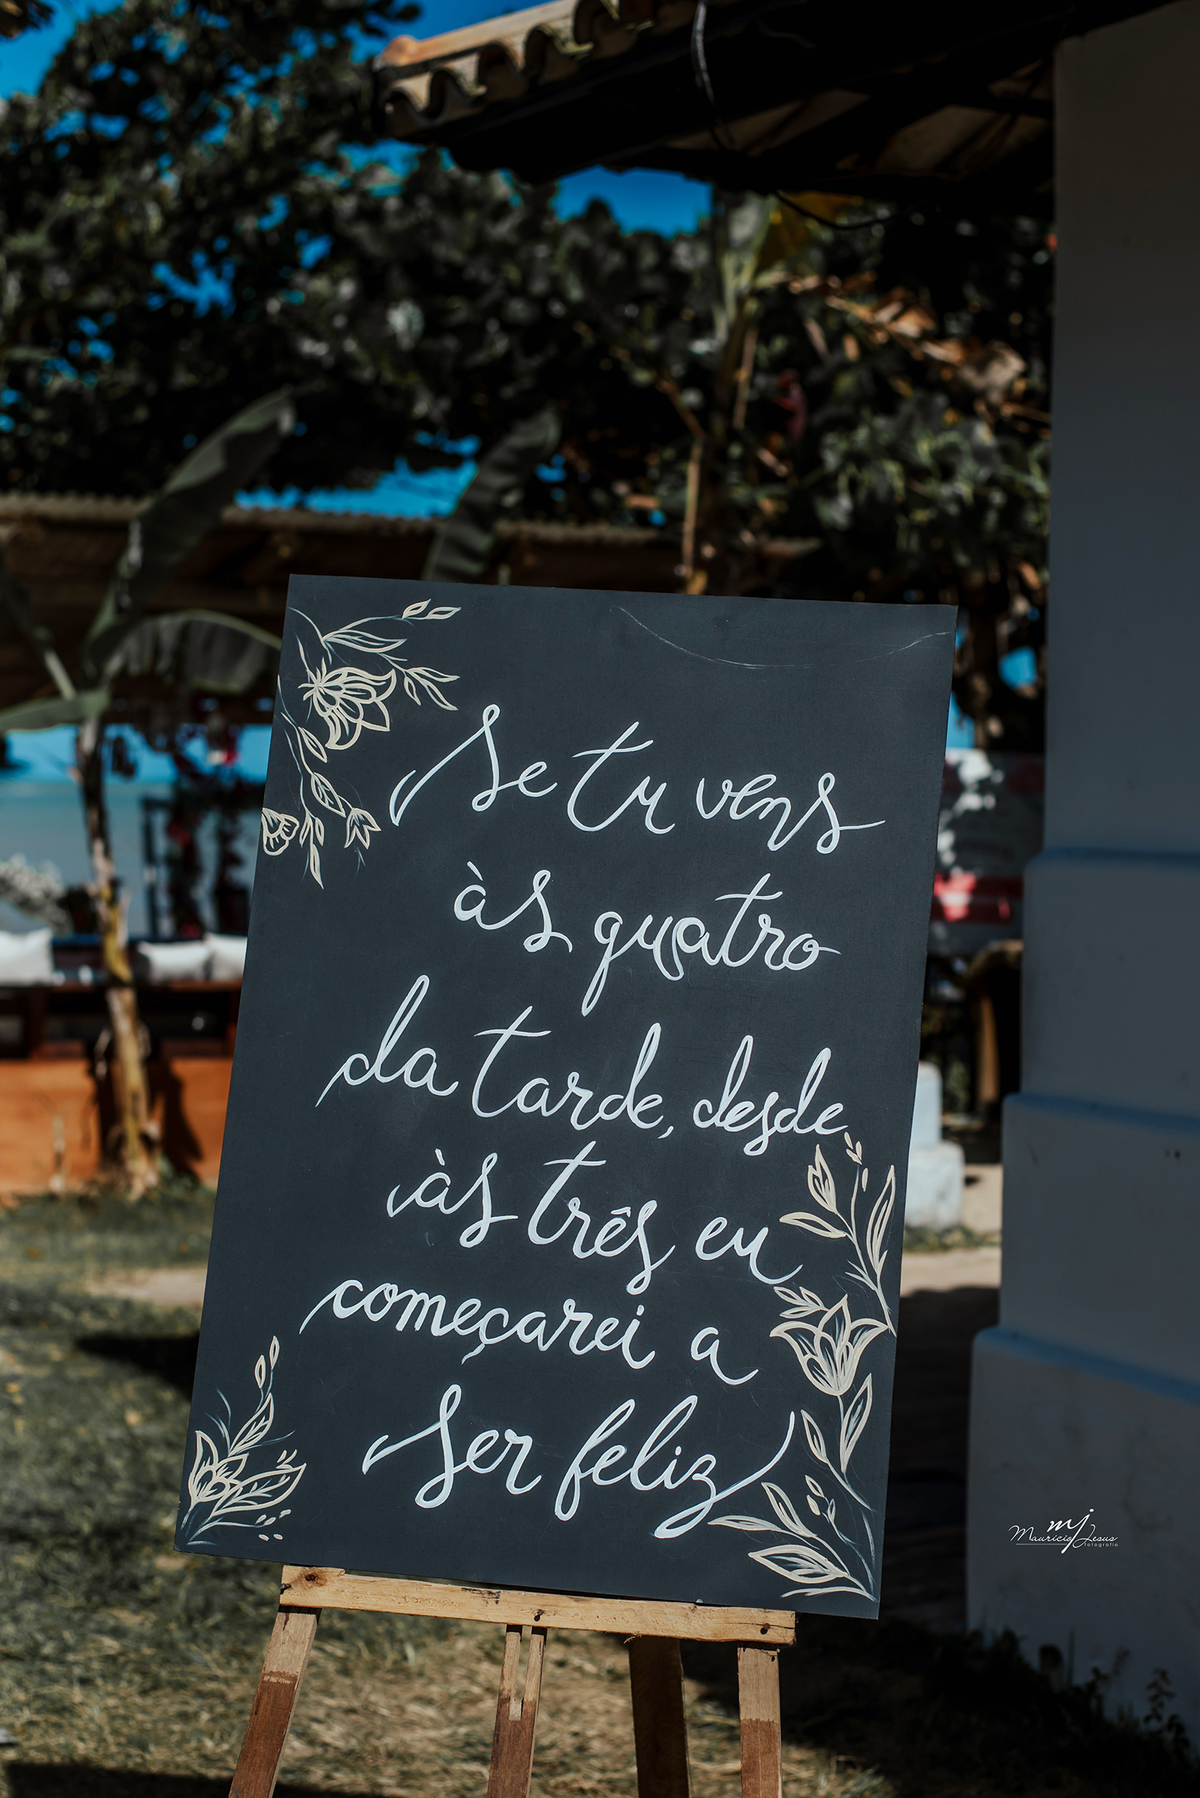 Se tu vens
às quatro
da tarde, desde
às três eu
começarei a
ser feliz
mj
Mauricio Jesus
fotografia